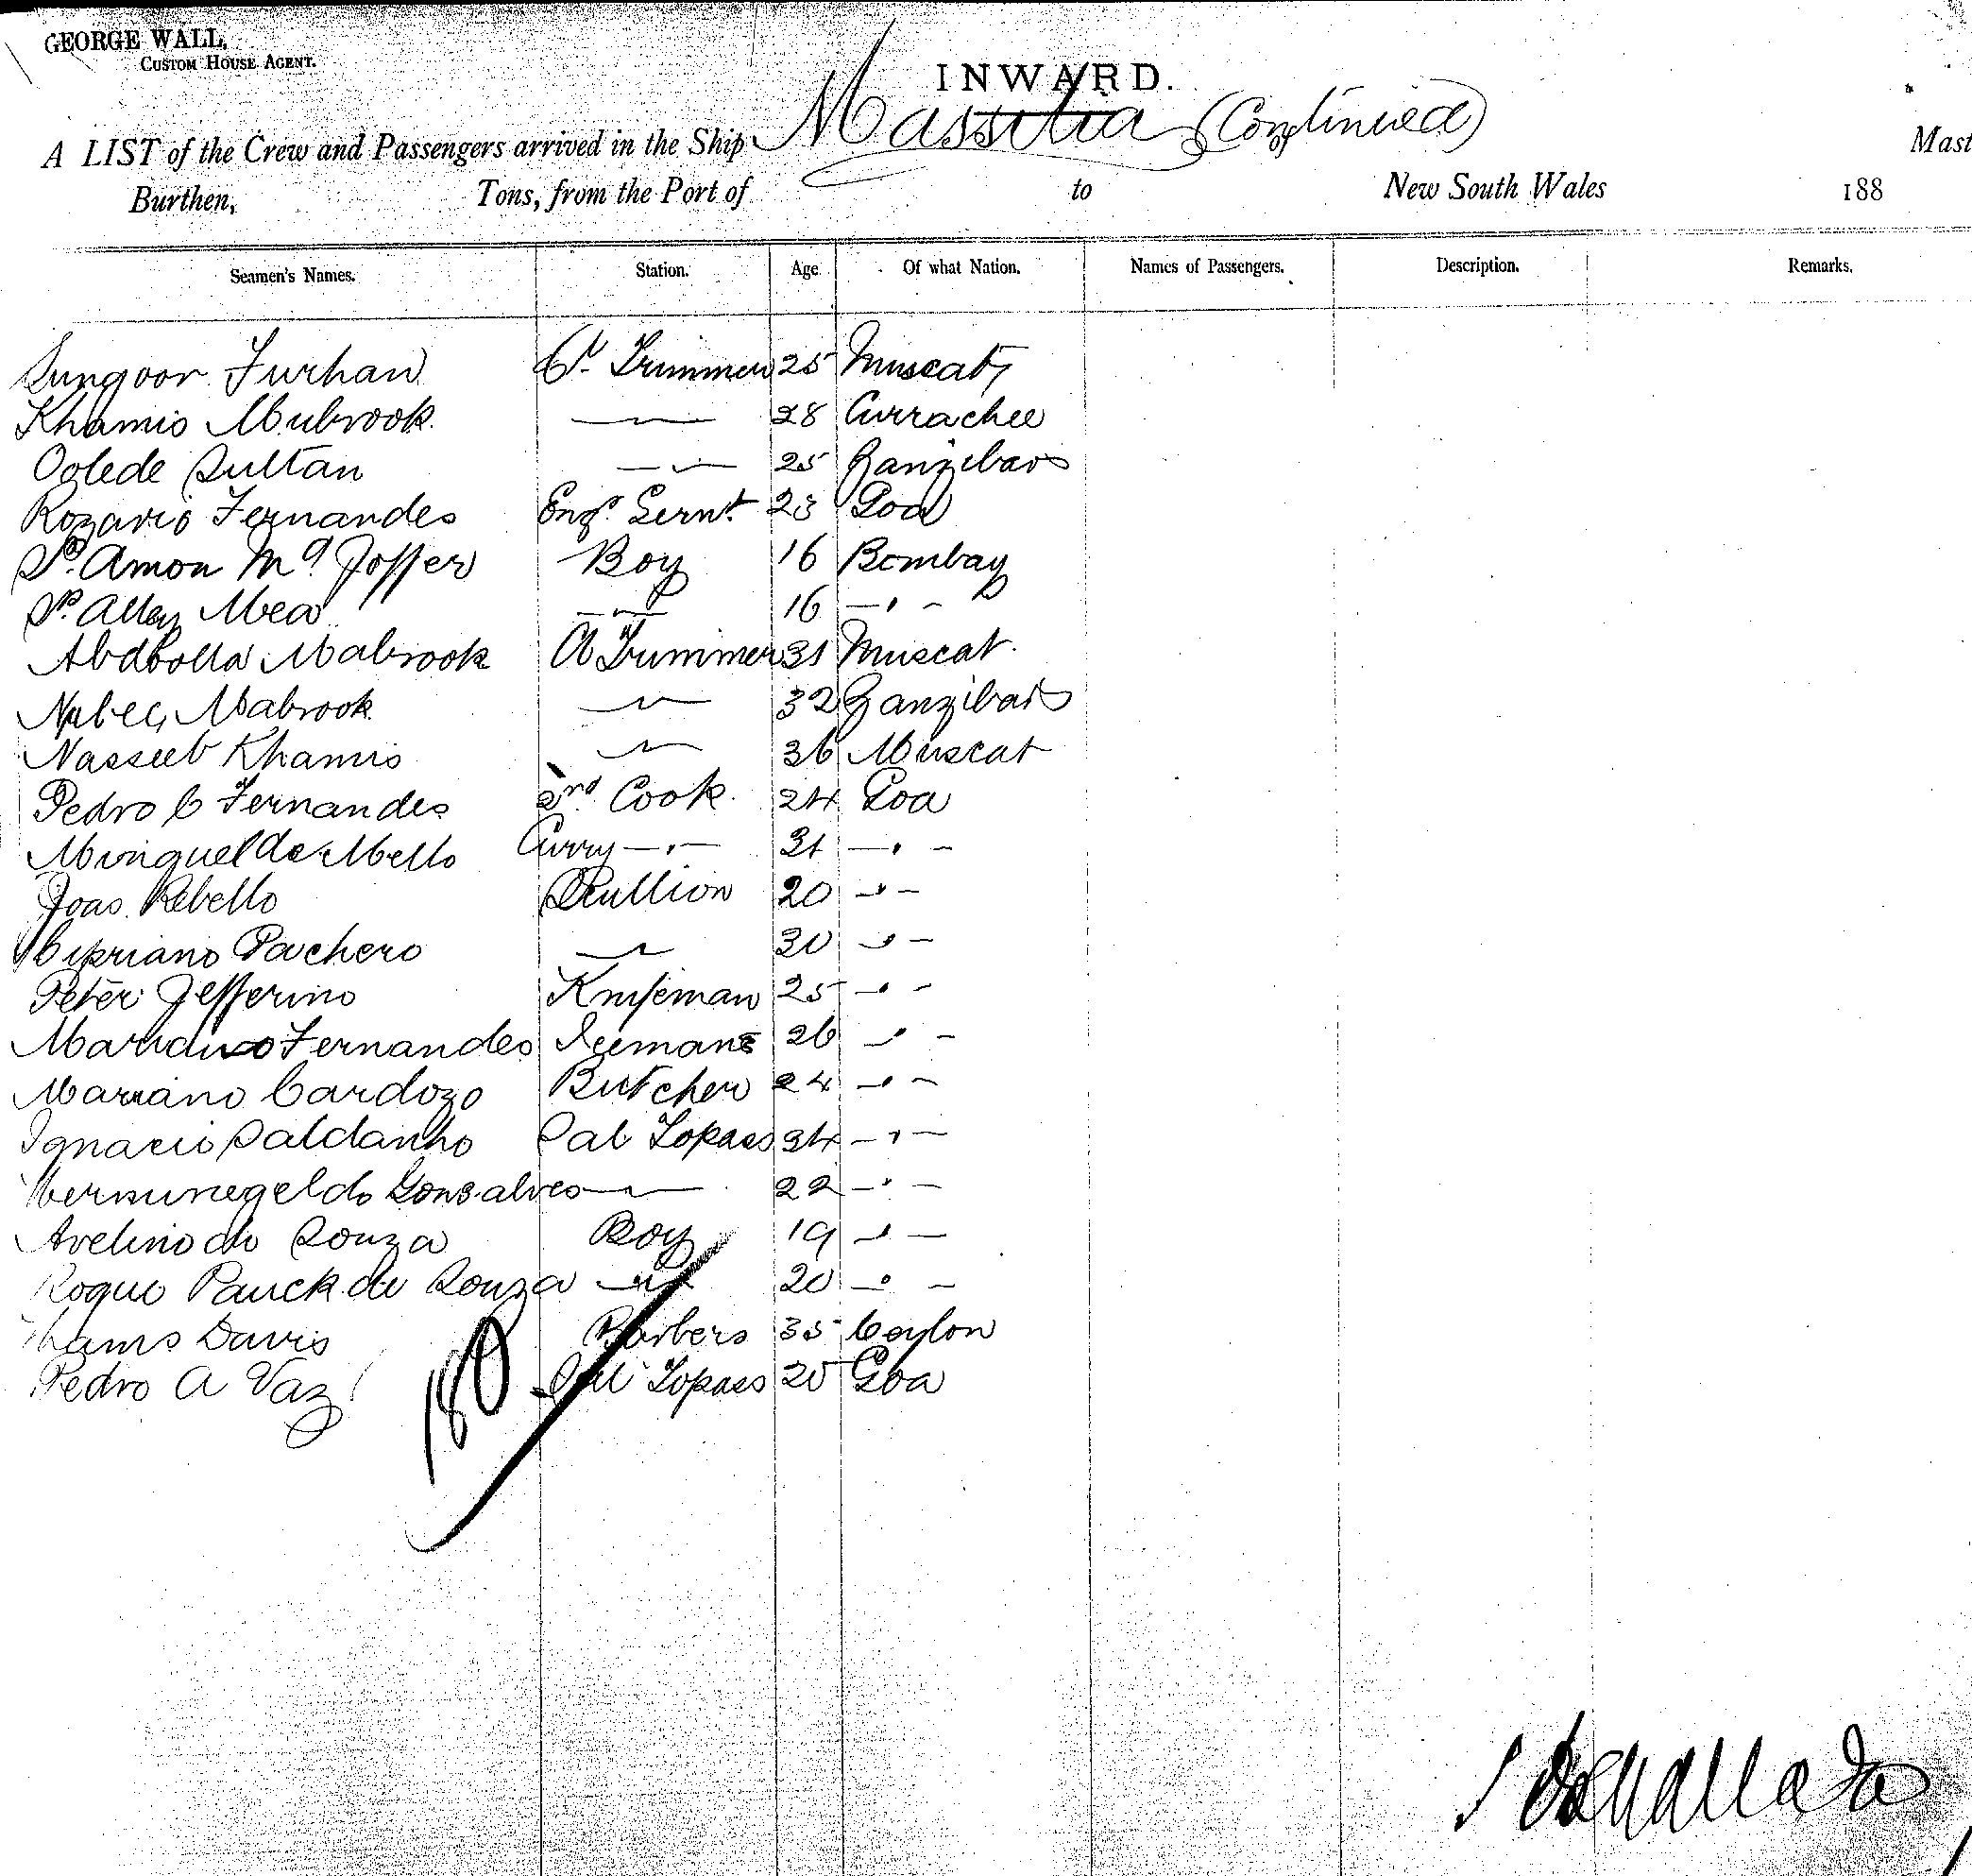 GEORGE WALL,
CUSTOM HOUSE AGENT.
INWARD.
A LIST of the Crew and Passengers arrived in the Ship Massilia (Continued) Mast
Burthen, Tons, from the Port of to New South Wales 188
Seamen's Names. Station. Age Of what Nation. Names of Passengers. Description. Remarks.
Sungoor Furhan Cl. Trimmer 25 Muscat
Khamis Mubrook — 28 Currachee
Oolede Sultan — 25 Zanzibar
Rozario Fernandes Engr. Servt. 23 Goa
Sk. Amon Md. Joffer Boy 16 Bombay
Sk. Alley Mea — 16 — " -
Abdbolla Mabrook Cl Trimmer 31 Muscat.
Mabrook — 32 Zanzibar
Nasseeb Khamis — 36 Muscat
Pedro C Fernandes 2nd Cook. 24 Goa
Minguel de Mello Curry — " — 31 — " -
Joao Rebello Scullion 20 — " -
Cipriano Pachero — 30 — " -
Peter Jefferino Knifeman 25 — " -
Fernandes Iceman 26 — " -
Mariano Cardozo Butcher 24 — " -
Ignacio Saldanho Topass 34 — " -
Hermenegeldo Gonsalves — 22 — " -
Avelino de Souza Boy 19 — " -
Roque de Souza — " — 20 — " -
Davis Barbers 35 Ceylon
Pedro A Vaz Topass 25 Goa
180